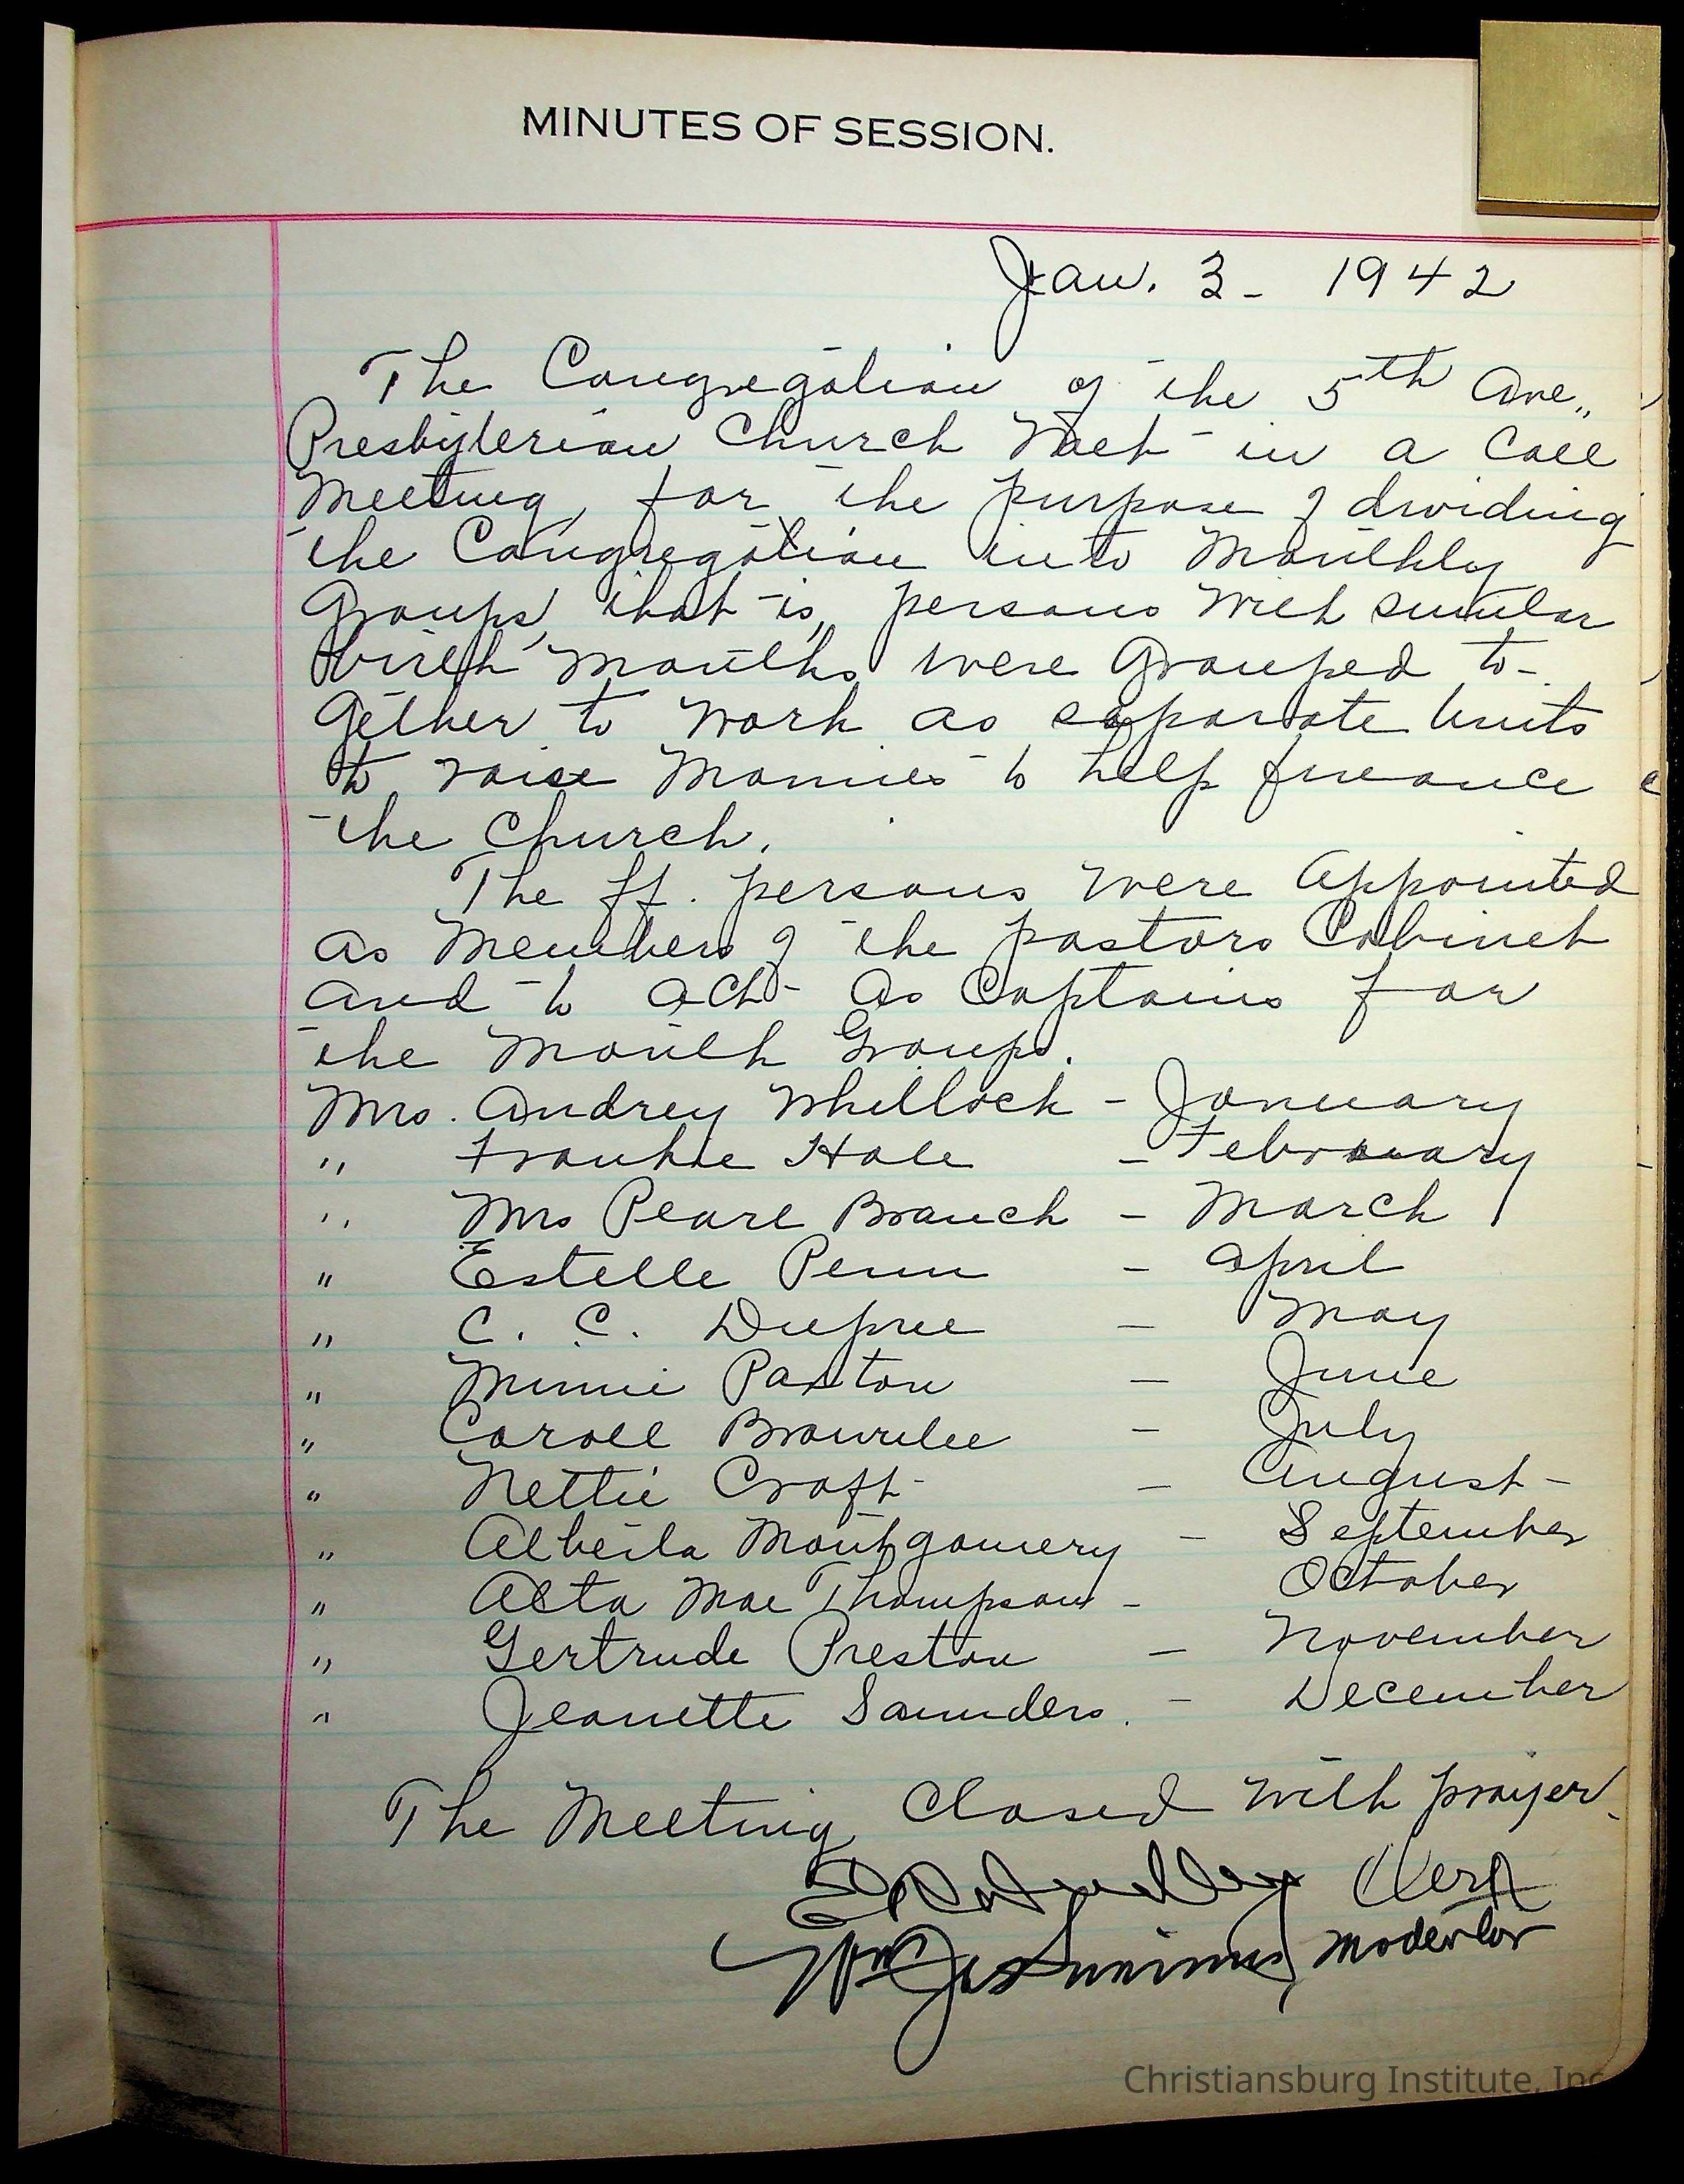 MINUTES OF SESSION.
Jan. 3 - 1942
The Congregation of the 5th Ave.,
Presbyterian Church Met in a Call
Meeting, for the purpose of dividing
the Congregation into Monthly
Groups, that is, persons with similar
birth months were Grouped to-
gether to work as separate Units
to raise Monies to help finance
the Church.
The ff. persons were Appointed
as Members of the pastors Cabinet
and to act as Captains for
the Month Groups.
Mrs. Audrey Whillock - January
" Frankie Hale - February
" Mrs Pearl Branch - March
" Estelle Penn - April
" C. C. Dupree - May
" Minnie Paxton - June
" Caroll Brownlee - July
" Nettie Craft - August
" Alberta Montgomery - September
" Alta Mae Thompson - October
" Gertrude Preston - November
" Jeanette Saunders. - December
The Meeting Closed with prayer.
Clerk
Moderator
Christiansburg Institute, Inc